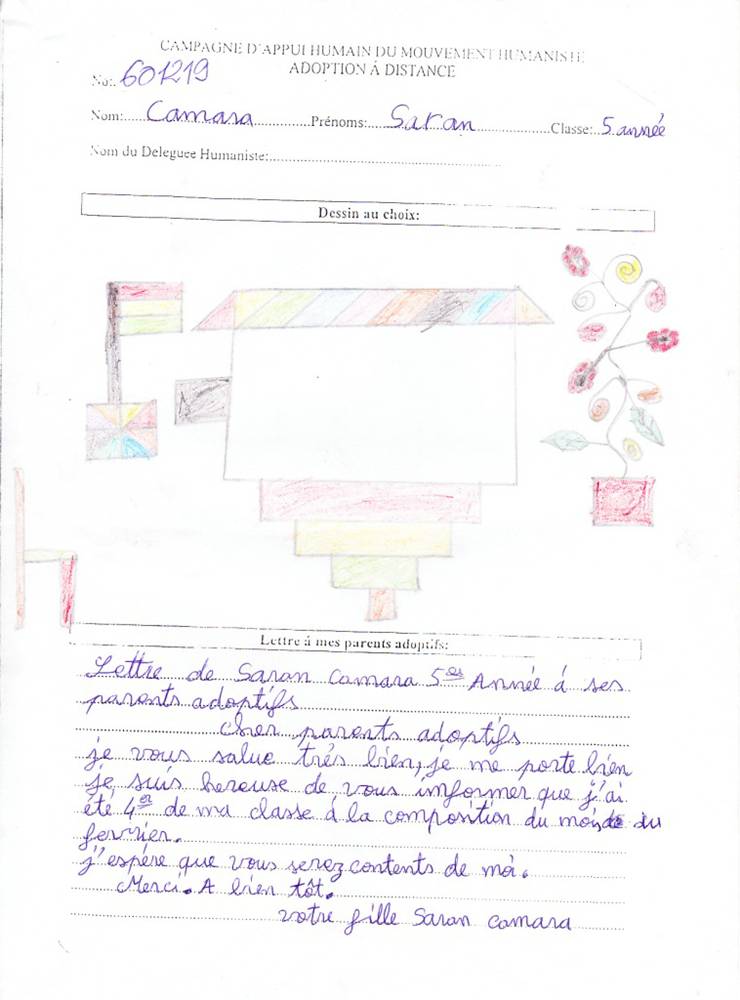 CAMPAGNE D'APPUI HUMAIN DU MOUVEMENT HUMANISTE
ADOPTION Á DISTANCE
No:. 601219
Nom:..... Camara ..............Prénoms:.... Saran ....................Classe:. 5 année
Nom du Deleguee Humaniste:..............................................................
Dessin au choix:
Lettre á mes parents adoptifs:
Lettre de Saran Camara 5ème Année á ses
parents adoptifs
cher parents adoptifs
je vous salue trés bien, je me porte bien
je suis hereuse de vous imformer que j'ai
été 4er de ma classe á la composition du mois du
fevrier.
j'espére que vous serez contents de moi.
Merci. A bien tôt.
votre fille Saran camara